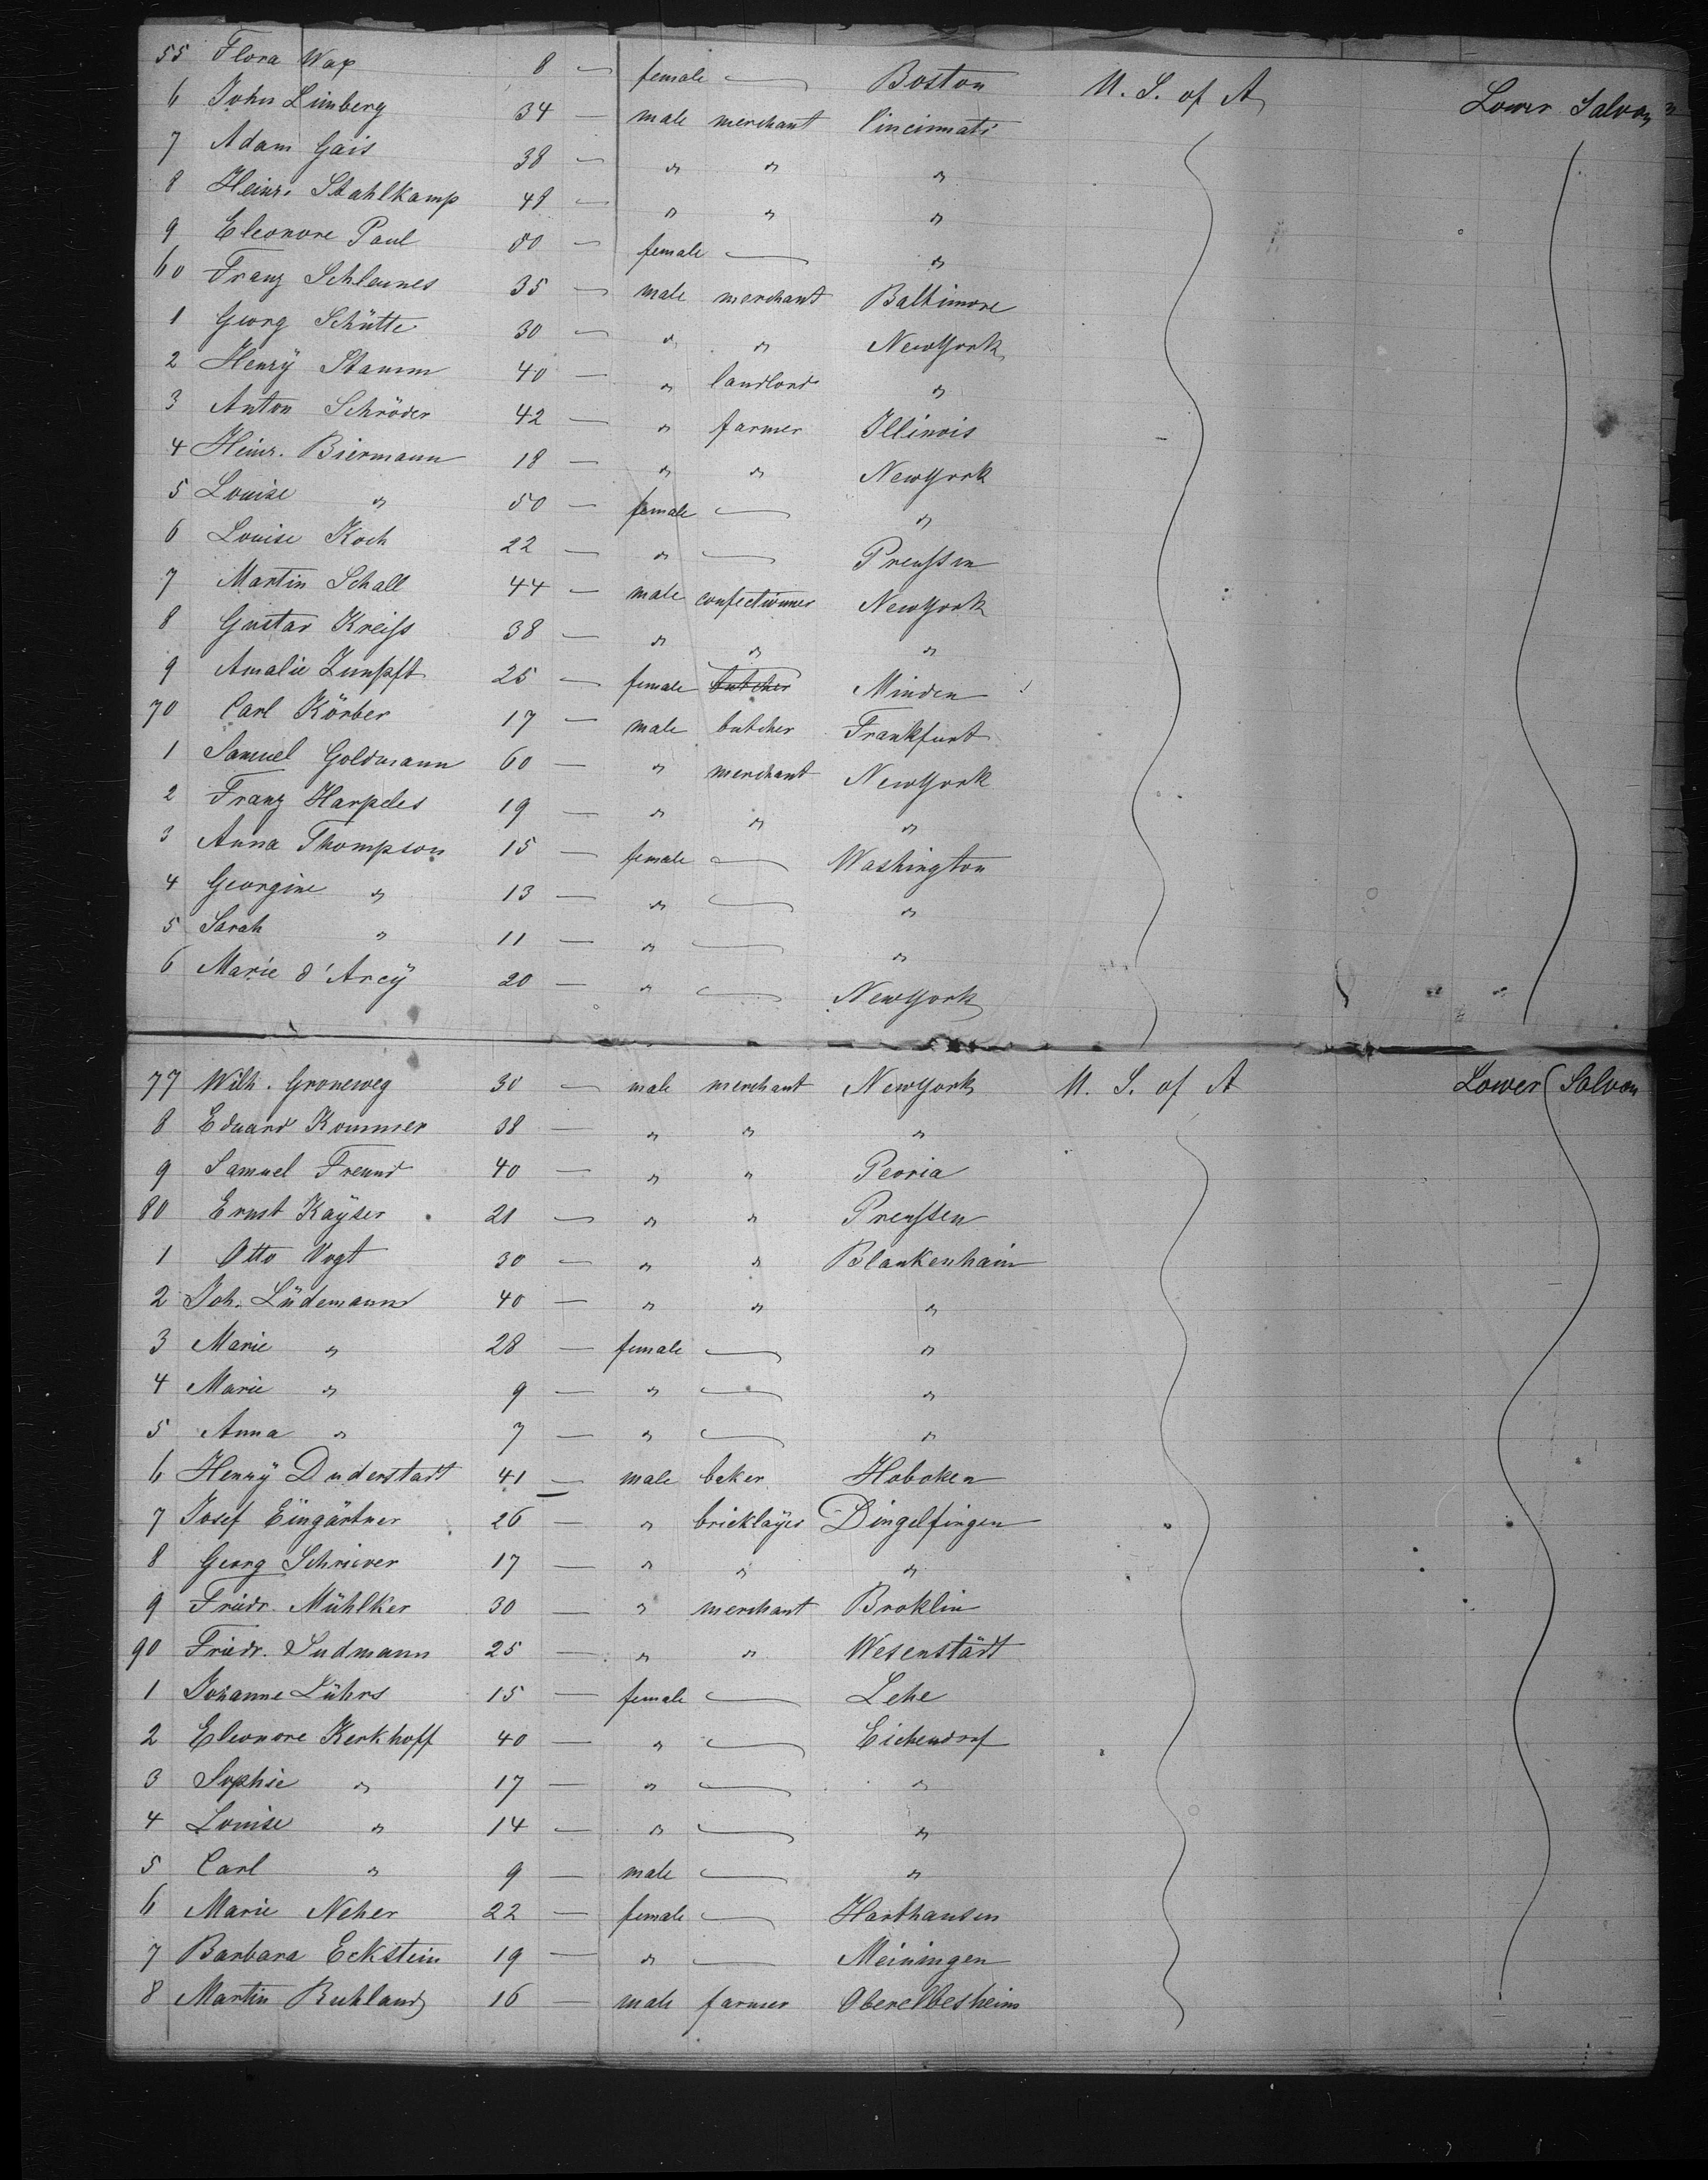 55 Flora Wax 8 — female — Boston U. S. of A. Lower Saloon
6 John Limberg 34 — male merchant Cincinnati
7 Adam Gais 38 — " " "
8 Heinr. Stahlkamp 48 — " " "
9 Eleonore Paul 50 — female — "
60 Franz Schleunes 35 — male merchant Baltimore
1 Georg Schütte 30 — " " NewYork
2 Henrÿ Stamm 40 — " landlord "
3 Anton Schröder 42 — " farmer Illinois
4 Heinr. Biermann 18 — " " NewYork
5 Louise " 50 — female — "
6 Louise Koch 22 — " — Preußen
7 Martin Schall 44 — male confectionner NewYork
8 Gustav Kreiß 38 — " " "
9 Amalie Zunpft 25 — female butcher Minden
70 Carl Körber 17 — male butcher Frankfurt
1 Samuel Goldmann 60 — " merchant NewYork
2 Franz Harpeles 19 — " " "
3 Anna Thompson 15 — female — Washington
4 Georgine " 13 — " — "
5 Sarah " 11 — " — "
6 Marie d'Arcÿ 20 — " — NewYork
77 Wilh. Groneweg 30 — male merchant NewYork U. S. of A Lower Saloon
8 Eduard Kommer 38 — " " "
9 Samuel Freund 40 — " " Peoria
80 Ernst Kaÿser 21 — " " Preußen
1 Otto Vogt 30 — " " Blankenhain
2 Joh. Lüdemann 40 — " " "
3 Marie " 28 — female — "
4 Marie " 9 — " — "
5 Anna " 7 — " — "
6 Henrÿ Duderstadt 41 — male beker Hoboken
7 Josef Eingärtner 26 — " bricklaÿer Dingelfingen
8 Georg Schriever 17 — " " "
9 Friedr. Mühlker 30 — " merchant Broklin
90 Friedr. Sudmann 25 — " " Wesenstädt
1 Johanne Lührs 15 — female — Lehe
2 Eleonore Kerkhoff 40 — " — Eichendorf
3 Sophie " 17 — " — "
4 Louise " 14 — " — "
5 Carl " 9 — male — "
6 Marie Neher 22 — female — Harthausen
7 Barbara Eckstein 19 — " — Meiningen
8 Martin Ruhland 16 — male farmer Oberelbesheim